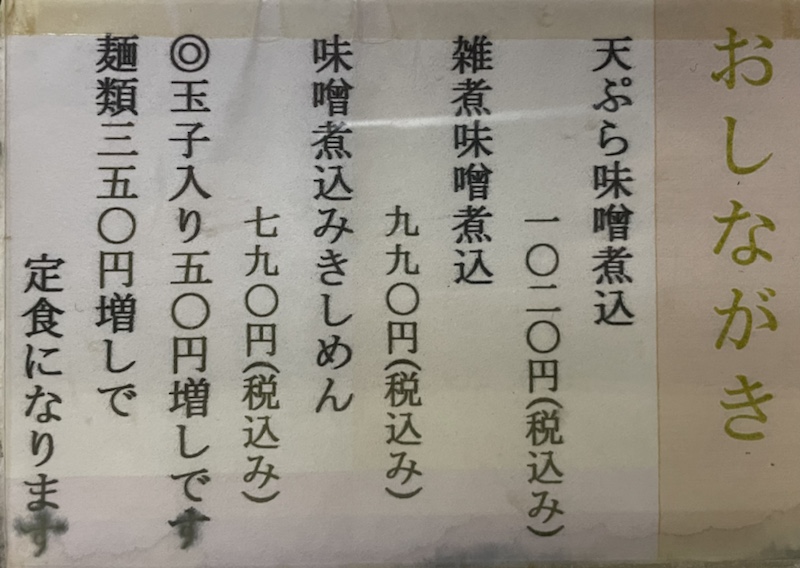 おしながき
天ぷら味噌煮込
一〇二〇円(税込み)
雑煮味噌煮込
九九〇円(税込み)
味噌煮込みきしめん
七九〇円(税込み)
◎玉子入り五〇円増しです
麺類三五〇円増しで
定食になります